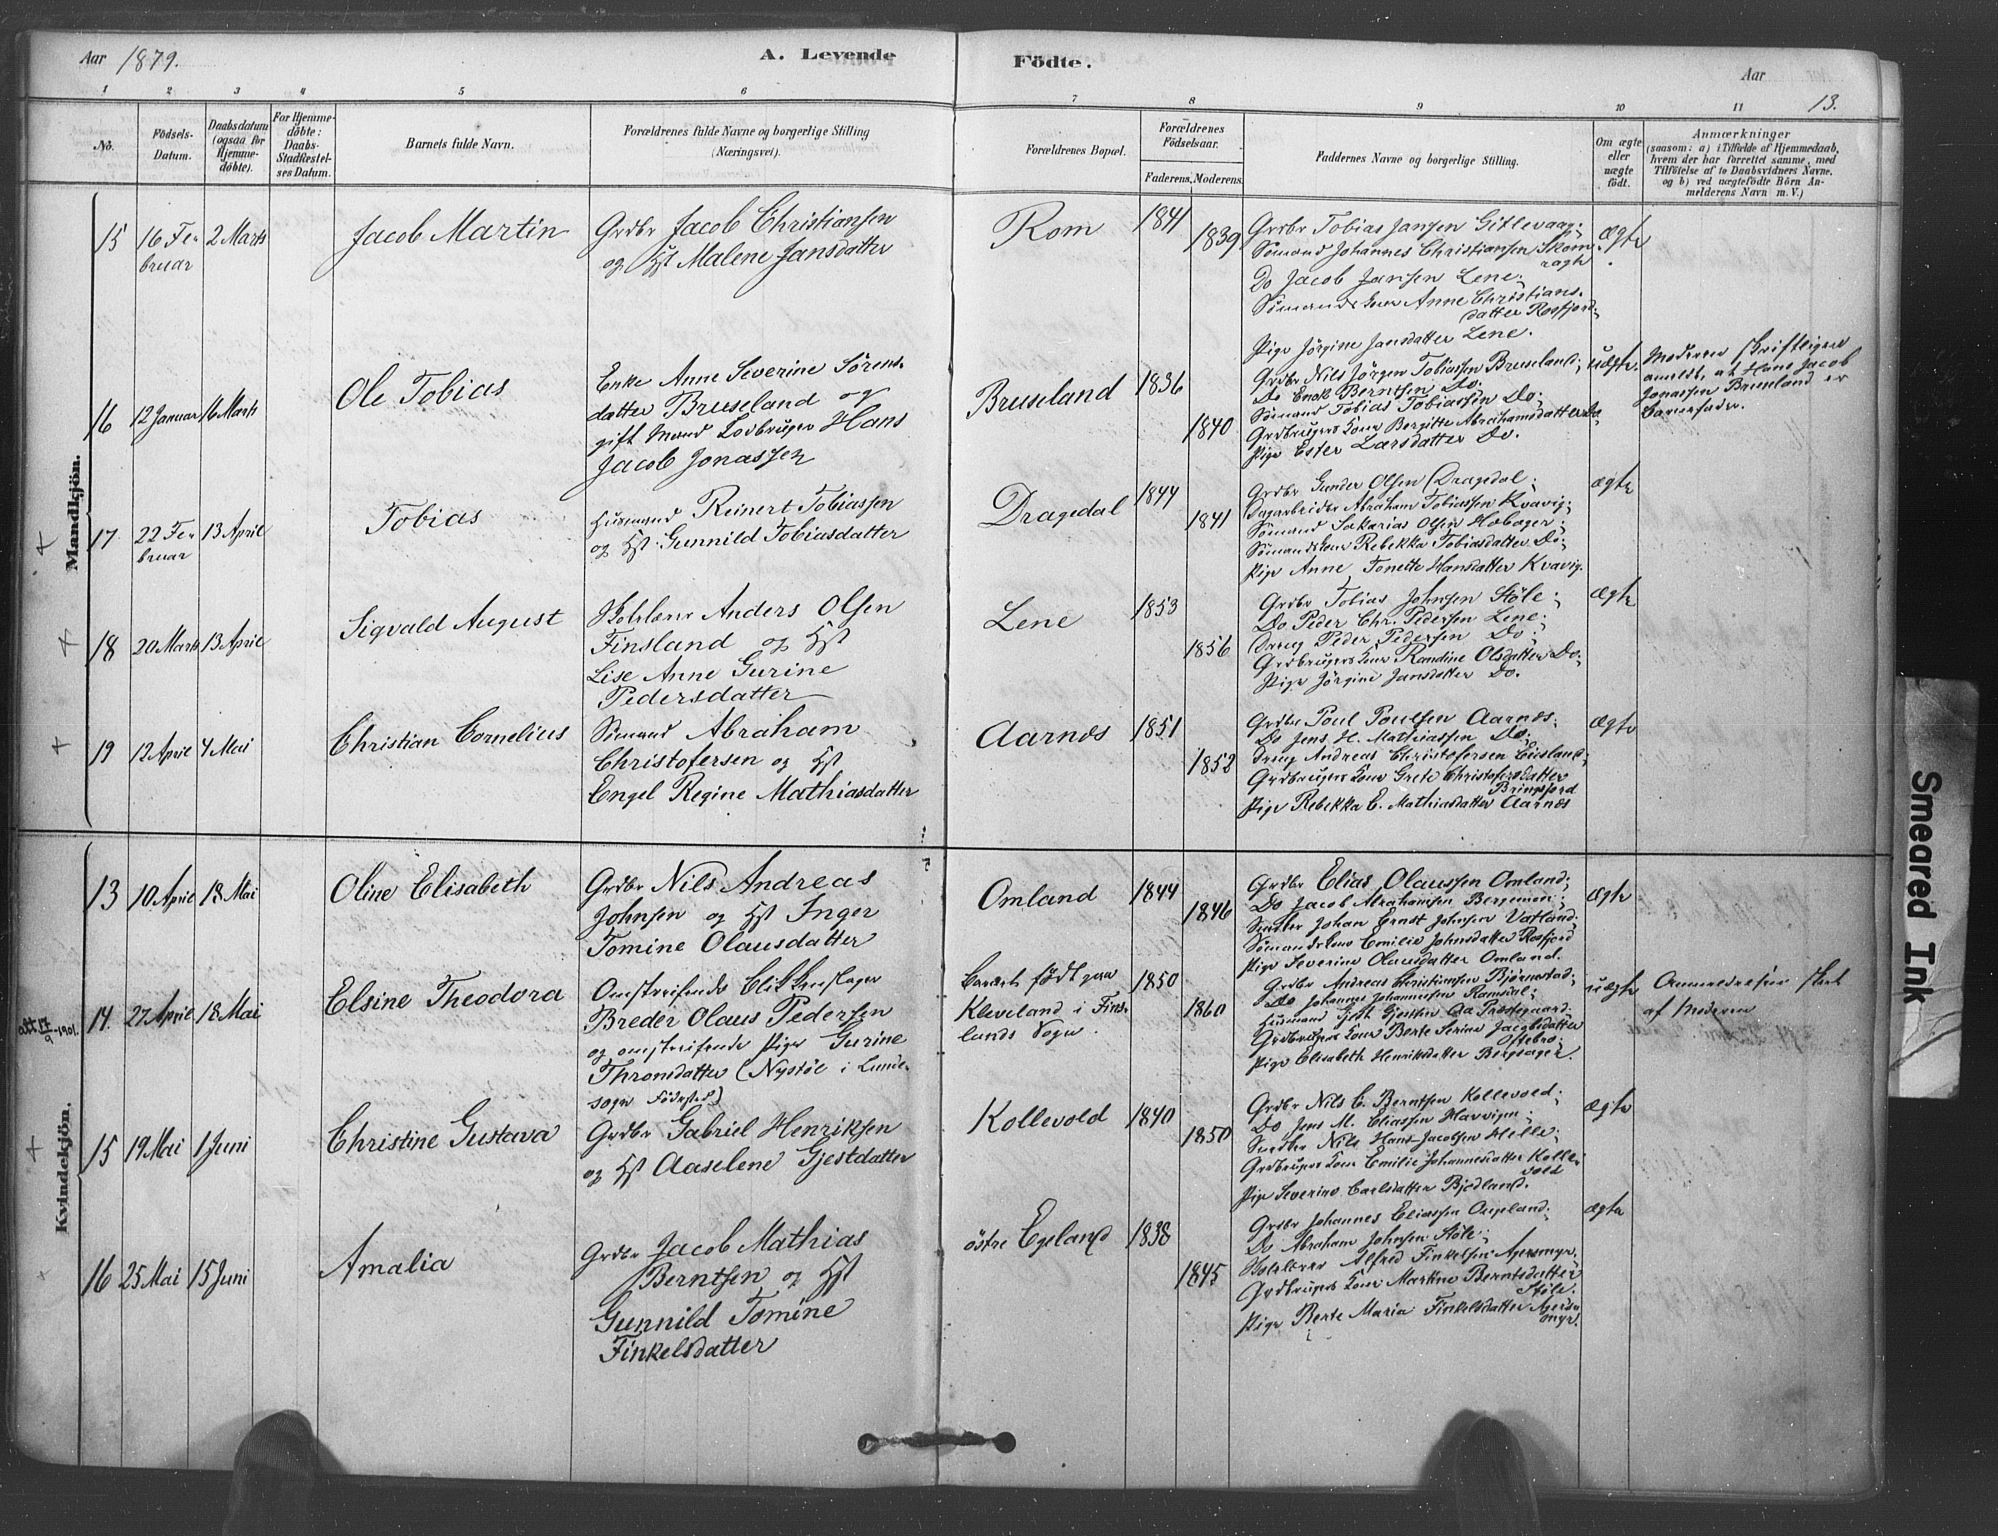 Aar 1879.
A. Levende Födte.
Aar
13.
1 2 3 4 5 6 7 8 9 10 11
No.
Födsels-Datum.
Daabsdatum (ogsaa for Hjemme-döbte).
For Hjemme-döbte: Daabs-Stadfæstel-ses Datum.
Barnets fulde Navn.
Forældrenes fulde Navne og borgerlige Stilling (Næringsvei).
Forældrenes Bopæl.
Forældrenes Födselsaar.
Faderens. Moderens.
Faddernes Navne og borgerlige Stilling.
Om ægte eller uægte födt.
Anmærkninger
(saasom: a) i Tilfælde af Hjemmedaab,
hvem der har forrettet samme, med
Tilföielse af to Daabsvidners Navne,
og b) ved uægtefödte Börn An-
melderens Navn m. V.)
Mandkjön.
15 16 Fe- 2 Marts Jacob Martin Grdbr Jacob Christiansen Rom 1841 1839 Grdbr Tobias Jansen Gitlevaag; ægte
bruar og Hst Malene Jansdatter Sömand Johannes Christiansen Skom-
ragte
Do Jacob Jansen Lene;
Sömands Kone Anne Christians-
datter Rosfjord;
Pige Jörgine Jansdatter Lene.
16 12 Januar 16 Marts Ole Tobias Enke Anne Severine Sörens- Bruseland 1836 1840 Grdbr Nils Jörgen Tobiassen Bruseland; uægte. Moderen skriftligen
datter Bruseland og Do Enok Berntsen Do; anmeldt, at Hans Jacob
gift Mand Lodbruger Hans Sömand Tobias Tobiassen Do; Jonassen Bruseland er
Jacob Jonassen Grdbrugers Kone Bergitte Abrahamsdatter Do Barnefader.
Pige Ester Larsdatter Do.
17 22 Fe- 13 April Tobias Husmand Reinert Tobiassen Dragedal 1844 1841 Grdbr Gunder Olsen Dragedal; ægte
bruar og Hst Gunnild Tobiasdatter Dagarbeider Abraham Tobiassen Kvavig;
Sömand Sakarias Olsen
Sömands Kone Rebekka Tobiasdatter Do;
Pige Anne Tonette Hansdatter Kvavig.
18 20 Marts 13 April Sigvald August Skolelærer Anders Olsen Lene 1853 1856 Grdbr Tobias Johnsen Stöle; ægte
Finsland og Hst Do Peder Chr. Pedersen Lene;
Lise Anne Gurine Dreng Peder Pedersen Do;
Pedersdatter Grdbrugers Kone Randine Olsdatter Do;
Pige Jörgine Jansdatter Do.
19 12 April 4 Mai Christian Cornelius Sömand Abraham Aarnes 1851 1852 Grdbr Poul Poulsen Aarnes; ægte
Christofersen og Hst Do Jens H. Mathiassen Do;
Engel Regine Mathiasdatter Dreng Andreas Christofersen
Grdbrugers Kone Grete Christofersdatter
Bringsjord
Pige Rebekka E. Mathiasdatter Aarnes
Kvindekjön.
13 10 April 18 Mai Oline Elisabeth Grdbr Nils Andreas Omland 1844 1846 Grdbr Elias Olaussen Omland; ægte
Johnsen og Hst Inger Do Jacob Abrahamsen
Tomine Olausdatter Johan Ernst Johnsen Vatland
Sömands Kone Emilie Johnsdatter Rosfjord
Pige Severine Olausdatter Omland.
1901.
14. 27 April 18 Mai Elsine Theodora Omstreifende Blikkenslager Barnet födt paa 1850 1860 Grdbr Andreas Christiansen Bjørnestad; uægte Anmeldelsen skeet
Breder Olaus Pedersen Kleveland i Fins- Do Johannes Johannesen af Moderen
og omstreifende Pige Gurine lands Sogn. Husmand
Thronsdatter (Nystöl i Lunde- Grdbrugers Kone Berte Serine Jacobsdatter
sogn Födested) Oftebro;
Pige Elisabeth Henriksdatter Bergsager.
15 19 Mai 1 Juni Christine Gustava Grdbr Gabriel Henriksen Kollevold 1840 1850 Grdbr Nils C. Berntsen Kollevold; ægte
og Hst Aaselene Gjestdatter Do Jens M. Eliassen
Nils Hans Jacobsen Helle;
Grdbrugers Kone Emilie Johannesdatter Kolle-
vold
Pige Severine Carlsdatter Bjodland.
16 25 Mai 15 Juni Amalia Grdbr Jacob Mathias östre Egeland 1838 1845 Grdbr Johannes Eliassen; ægte
Berntsen og Hst Do Abraham Johnsen Stöle;
Gunnild Tomine Alfred Finkelsen Agersmyr;
Finkelsdatter Grdbrugers Kone Martine Berntsdatter
Stöle.
Pige Berte Maria Finkelsdatter Agers-
myr.
Smeared Ink